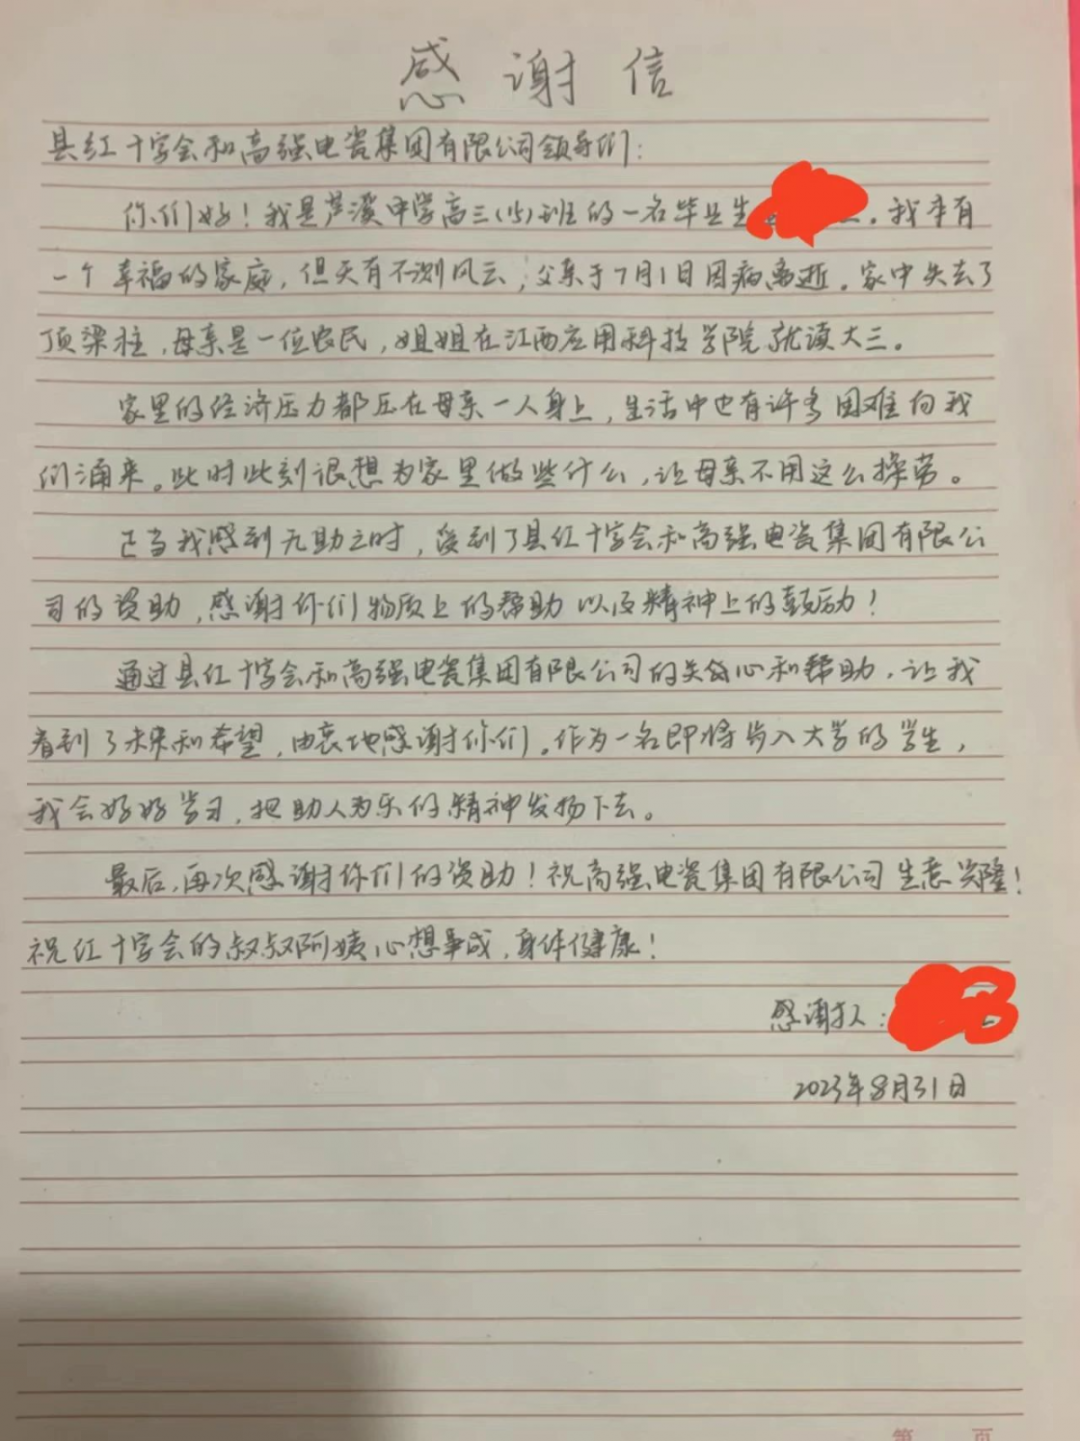 感谢信
县红十字会和高强电瓷集团有限公司领导们:
你们好!我是芦溪中学高三(15)班的一名毕业生。我本有
一个幸福的家庭,但天有不测风云,父亲于7月1日因病离逝。家中失去了
顶梁柱,母亲是一位农民,姐姐在江西应用科技学院就读大三。
家里的经济压力都压在母亲一人身上,生活中也有许多困难向我
们涌来。此时此刻很想为家里做些什么,让母亲不用这么操劳。
正当我感到无助之时,受到了县红十字会和高强电瓷集团有限公
司的资助,感谢你们物质上的帮助以及精神上的鼓励!
通过县红十字会和高强电瓷集团有限公司的关心和帮助,让我
看到了未来和希望,由衷地感谢你们。作为一名即将步入大学的学生,
我会好好学习,把助人为乐的精神发扬下去。
最后,再次感谢你们的资助!祝高强电瓷集团有限公司生意兴隆!
祝红十字会的叔叔阿姨心想事成,身体健康!
感谢人:
2023年8月31日
第 页